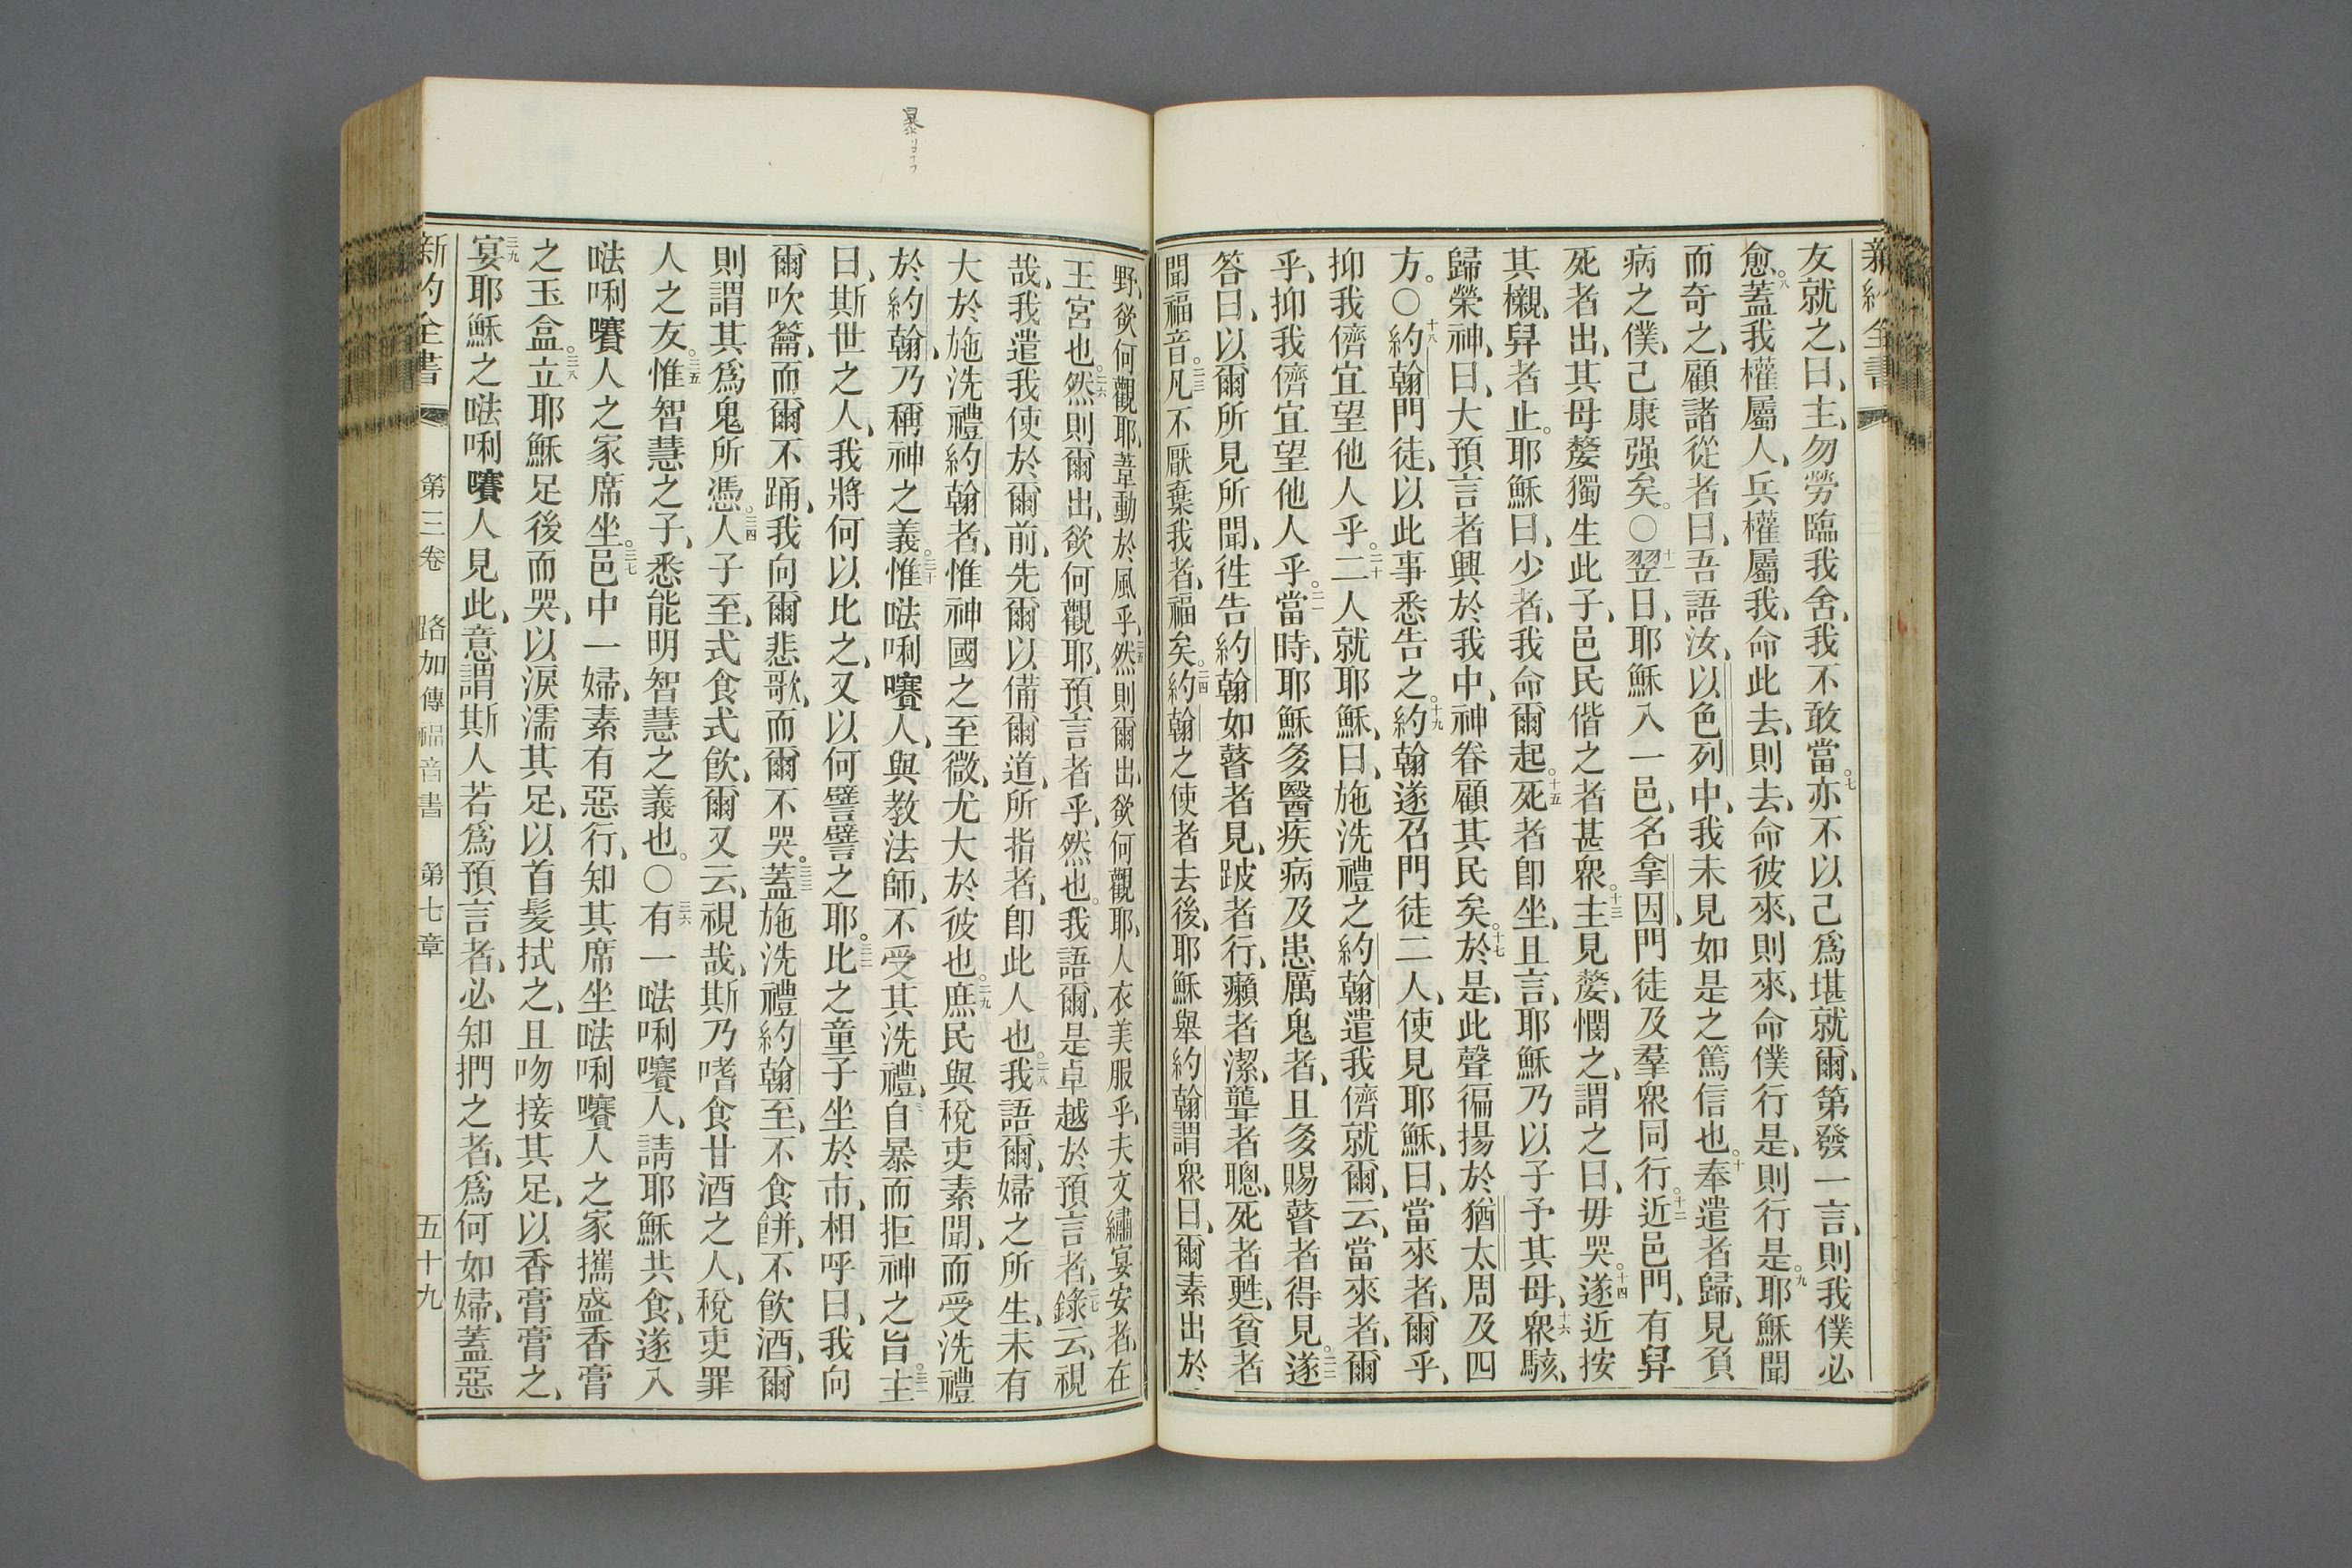 新約全書
友就之、曰、主、勿勞臨我舍、我不敢當。七亦不以己爲堪就爾、第發一言、則我僕必
愈。八蓋我權屬人、兵權屬我、命此去、則去、命彼來、則來、命僕行是、則行是。九耶穌聞
而奇之、顧諸從者曰、吾語汝、以色列中、我未見如是之篤信也。十奉遣者歸、見負
病之僕、己康强矣。○十一翌日、耶穌入一邑、名拿因、門徒及羣衆同行。十二近邑門、有舁
死者出、其母嫠、獨生此子、邑民偕之者甚衆。十三主見嫠、憫之、謂之曰、毋哭。十四遂近按
其櫬、舁者止。耶穌曰、少者、我命爾起。十五死者卽坐、且言、耶穌乃以子予其母、十六衆駭、
歸榮神、曰、大預言者興於我中、神眷顧其民矣。十七於是、此聲徧揚於猶太周及四
方。○十八約翰門徒、以此事悉告之。十九約翰遂召門徒二人、使見耶穌、曰、當來者、爾乎、
抑我儕宜望他人乎。二十二人就耶穌、曰、施洗禮之約翰遣我儕就爾、云、當來者、爾
乎、抑我儕宜望他人乎。二一當時、耶穌多醫疾病及患厲鬼者、且多賜瞽者得見。二二遂
答曰、以爾所見所聞、徃告約翰如瞽者見、跛者行、癩者潔、聾者聰、死者甦、貧者
聞福音。二三凡不厭棄我者、福矣。二四約翰之使者去後、耶穌舉約翰謂衆曰、爾素出於
野、欲何觀耶、葦動於風乎、二五然則爾出、欲何觀耶、人衣美服乎、夫文繡宴安者、在
王宮也。二六然則爾出、欲何觀耶、預言者乎、然也。我語爾、是卓越於預言者、二七錄云、視
哉、我遣我使於爾前、先爾以備爾道、所指者、卽此人也。二八我語爾、婦之所生、未有
大於施洗禮約翰者、惟神國之至微、尤大於彼也。二九庶民與稅吏素聞、而受洗禮
於約翰、乃稱神之義。三十惟㕸唎㘔人、與教法師、不受其洗禮、自暴而拒神之旨。三一主
曰、斯世之人、我將何以比之、又以何譬譬之耶。三二比之童子坐於市、相呼曰、我向
爾吹籥、而爾不踊、我向爾悲歌、而爾不哭。三三蓋施洗禮約翰至、不食餅、不飮酒、爾
則謂其爲鬼所憑。三四人子至、式食式飮、爾又云、視哉、斯乃嗜食甘酒之人、稅吏罪
人之友。三五惟智慧之子、悉能明智慧之義也。○三六有一㕸唎㘔人、請耶穌共食、遂入
㕸唎㘔人之家席坐。三七邑中一婦、素有惡行、知其席坐㕸唎㘔人之家攜盛香膏
之玉盒。三八立耶穌足後而哭、以淚濡其足、以首髮拭之、且吻接其足、以香膏膏之、
三九宴耶穌之㕸唎㘔人見此、意謂斯人若爲預言者、必知捫之者、爲何如婦、蓋惡
新約全書 第三卷 路加傳福音書 第七章 五十九